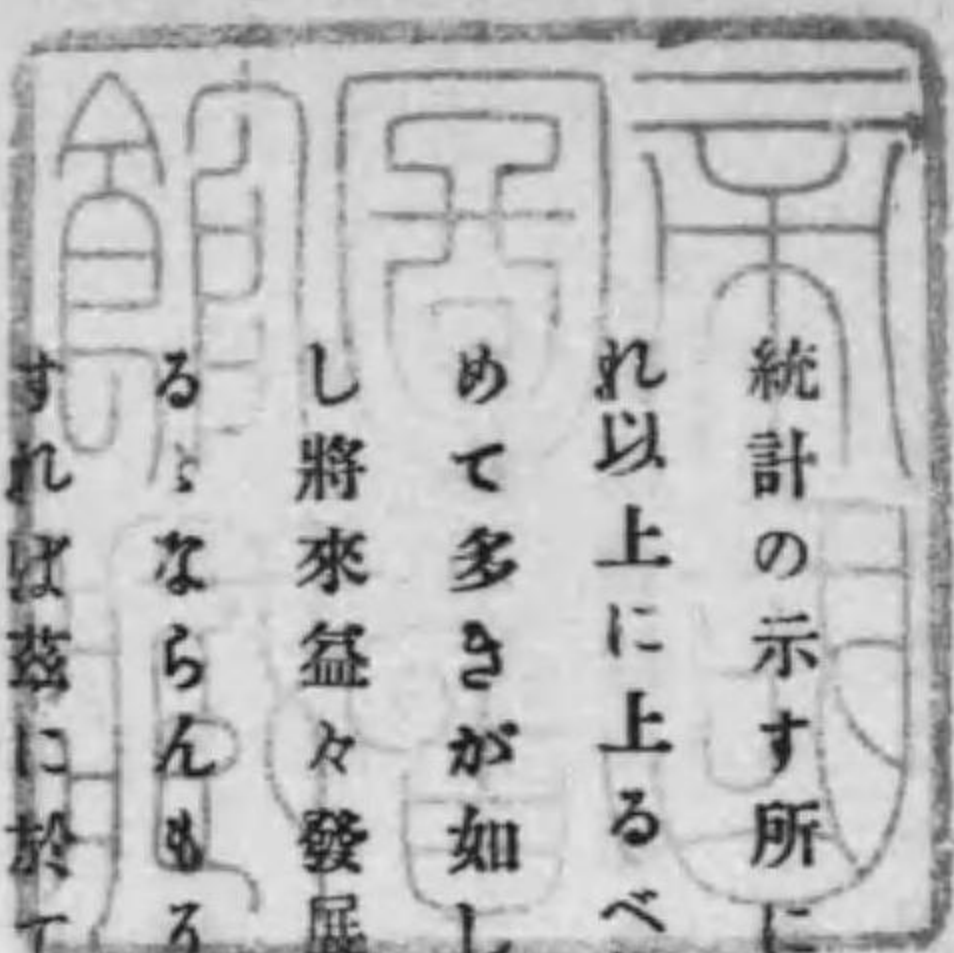 帝國
圖書
館藏
統計の示す所に
れ以上に上るべ
めて多きが如し
し將來益々發展
るゝならんも
すれば茲に於て